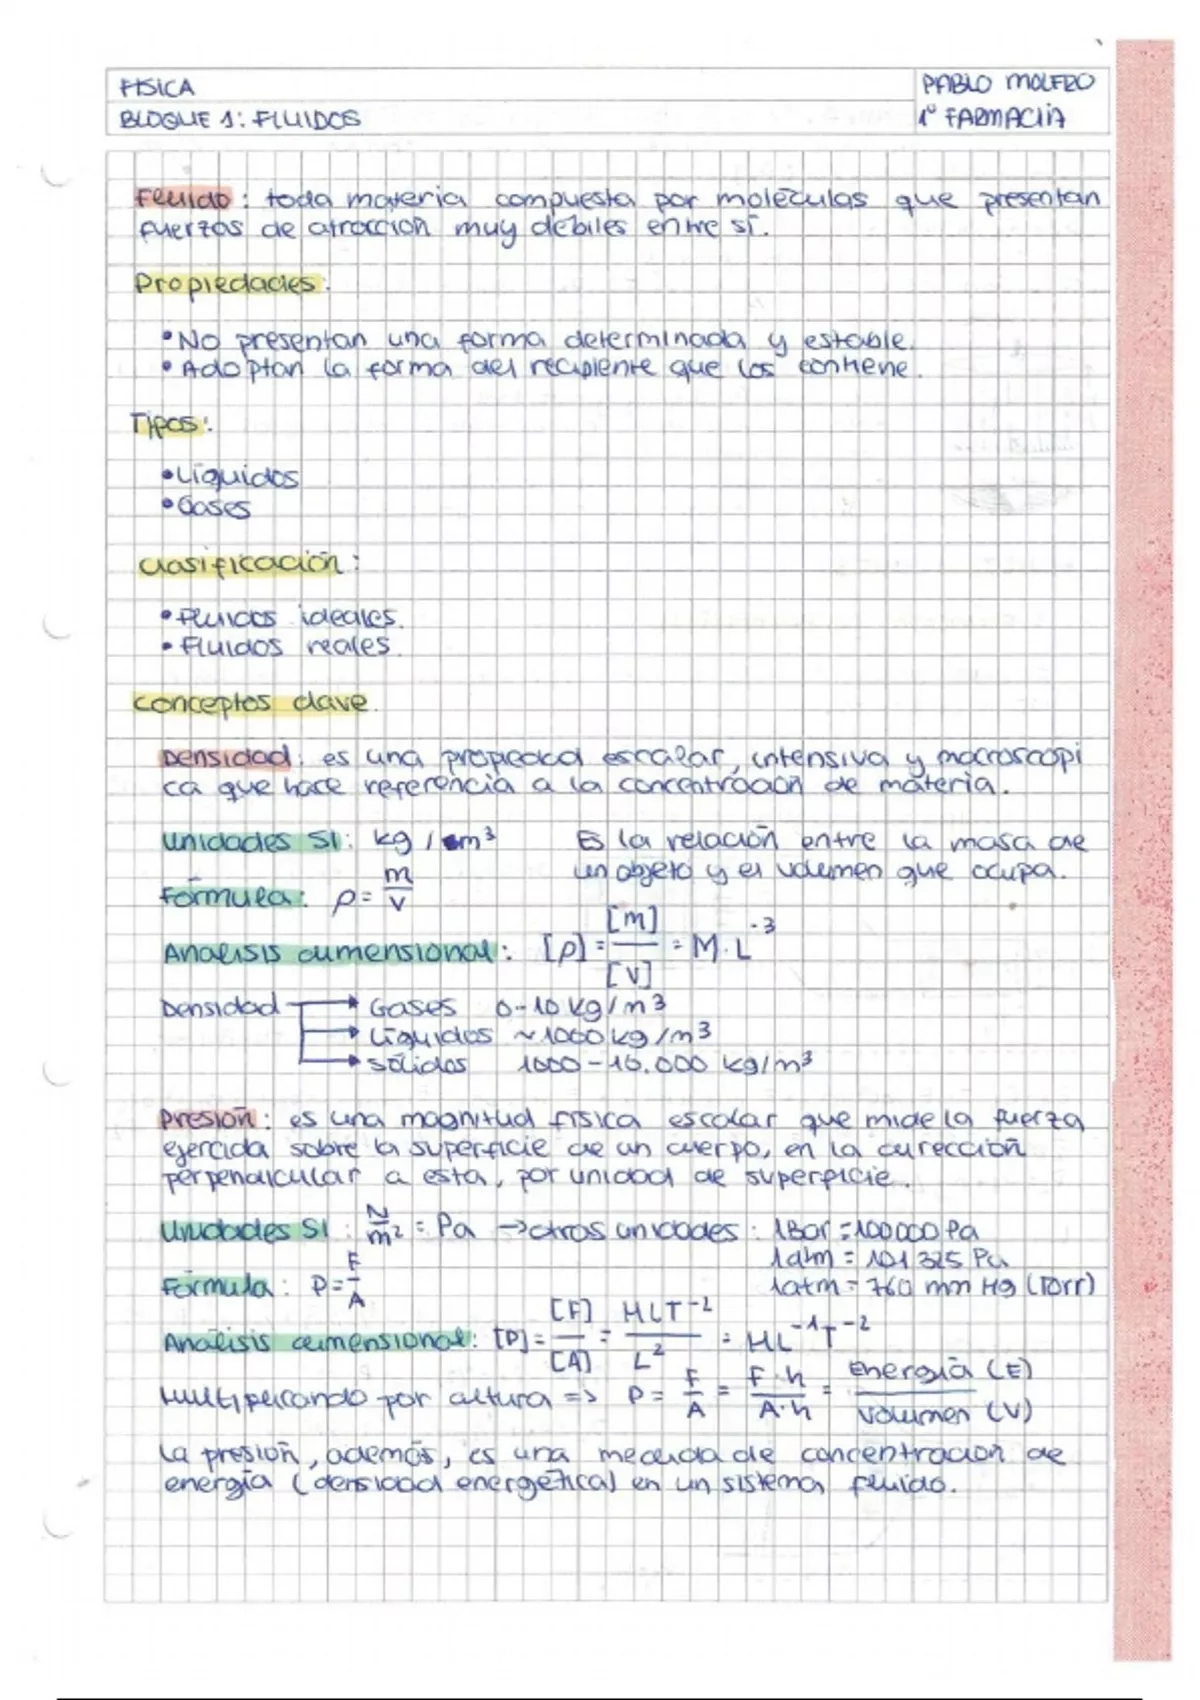 FISICA
PABLO MOLERO
BLOQUE 1: FLUIDOS
1º FARMACIA
Fluido: toda materia compuesta por moléculas que presentan
fuerzas de atracción muy débiles entre sí.
Propiedades:
• No presentan una forma determinada y estable.
• Adoptan la forma del recipiente que los contiene.
Tipos:
• Líquidos
• Gases
Clasificación:
• Fluidos ideales.
• Fluidos reales.
Conceptos clave.
Densidad: es una propiedad escalar, intensiva y macroscópi
ca que hace referencia a la concentración de materia.
Unidades SI: kg / m³ Es la relación entre la masa de
un objeto y el volumen que ocupa.
Fórmula: ρ = m/V
Análisis dimensional: [ρ] = [m]/[V] = M·L⁻³
Densidad → Gases 0-10 kg/m³
→ Líquidos ~1000 kg/m³
→ Sólidos 1000-10.000 kg/m³
Presión: es una magnitud física escalar que mide la fuerza
ejercida sobre la superficie de un cuerpo, en la dirección
perpendicular a esta, por unidad de superficie.
Unidades SI: N/m² = Pa → otras unidades: 1Bar = 100000 Pa
1atm = 101325 Pa
Fórmula: P = F/A 1atm = 760 mm Hg (Torr)
Análisis dimensional: [P] = [F]/[A] = MLT⁻²/L² = ML⁻¹T⁻²
Multiplicando por altura => P = F/A = F·h/A·h = Energía (E)/Volumen (V)
La presión, además, es una medida de concentración de
energía (densidad energética) en un sistema fluido.